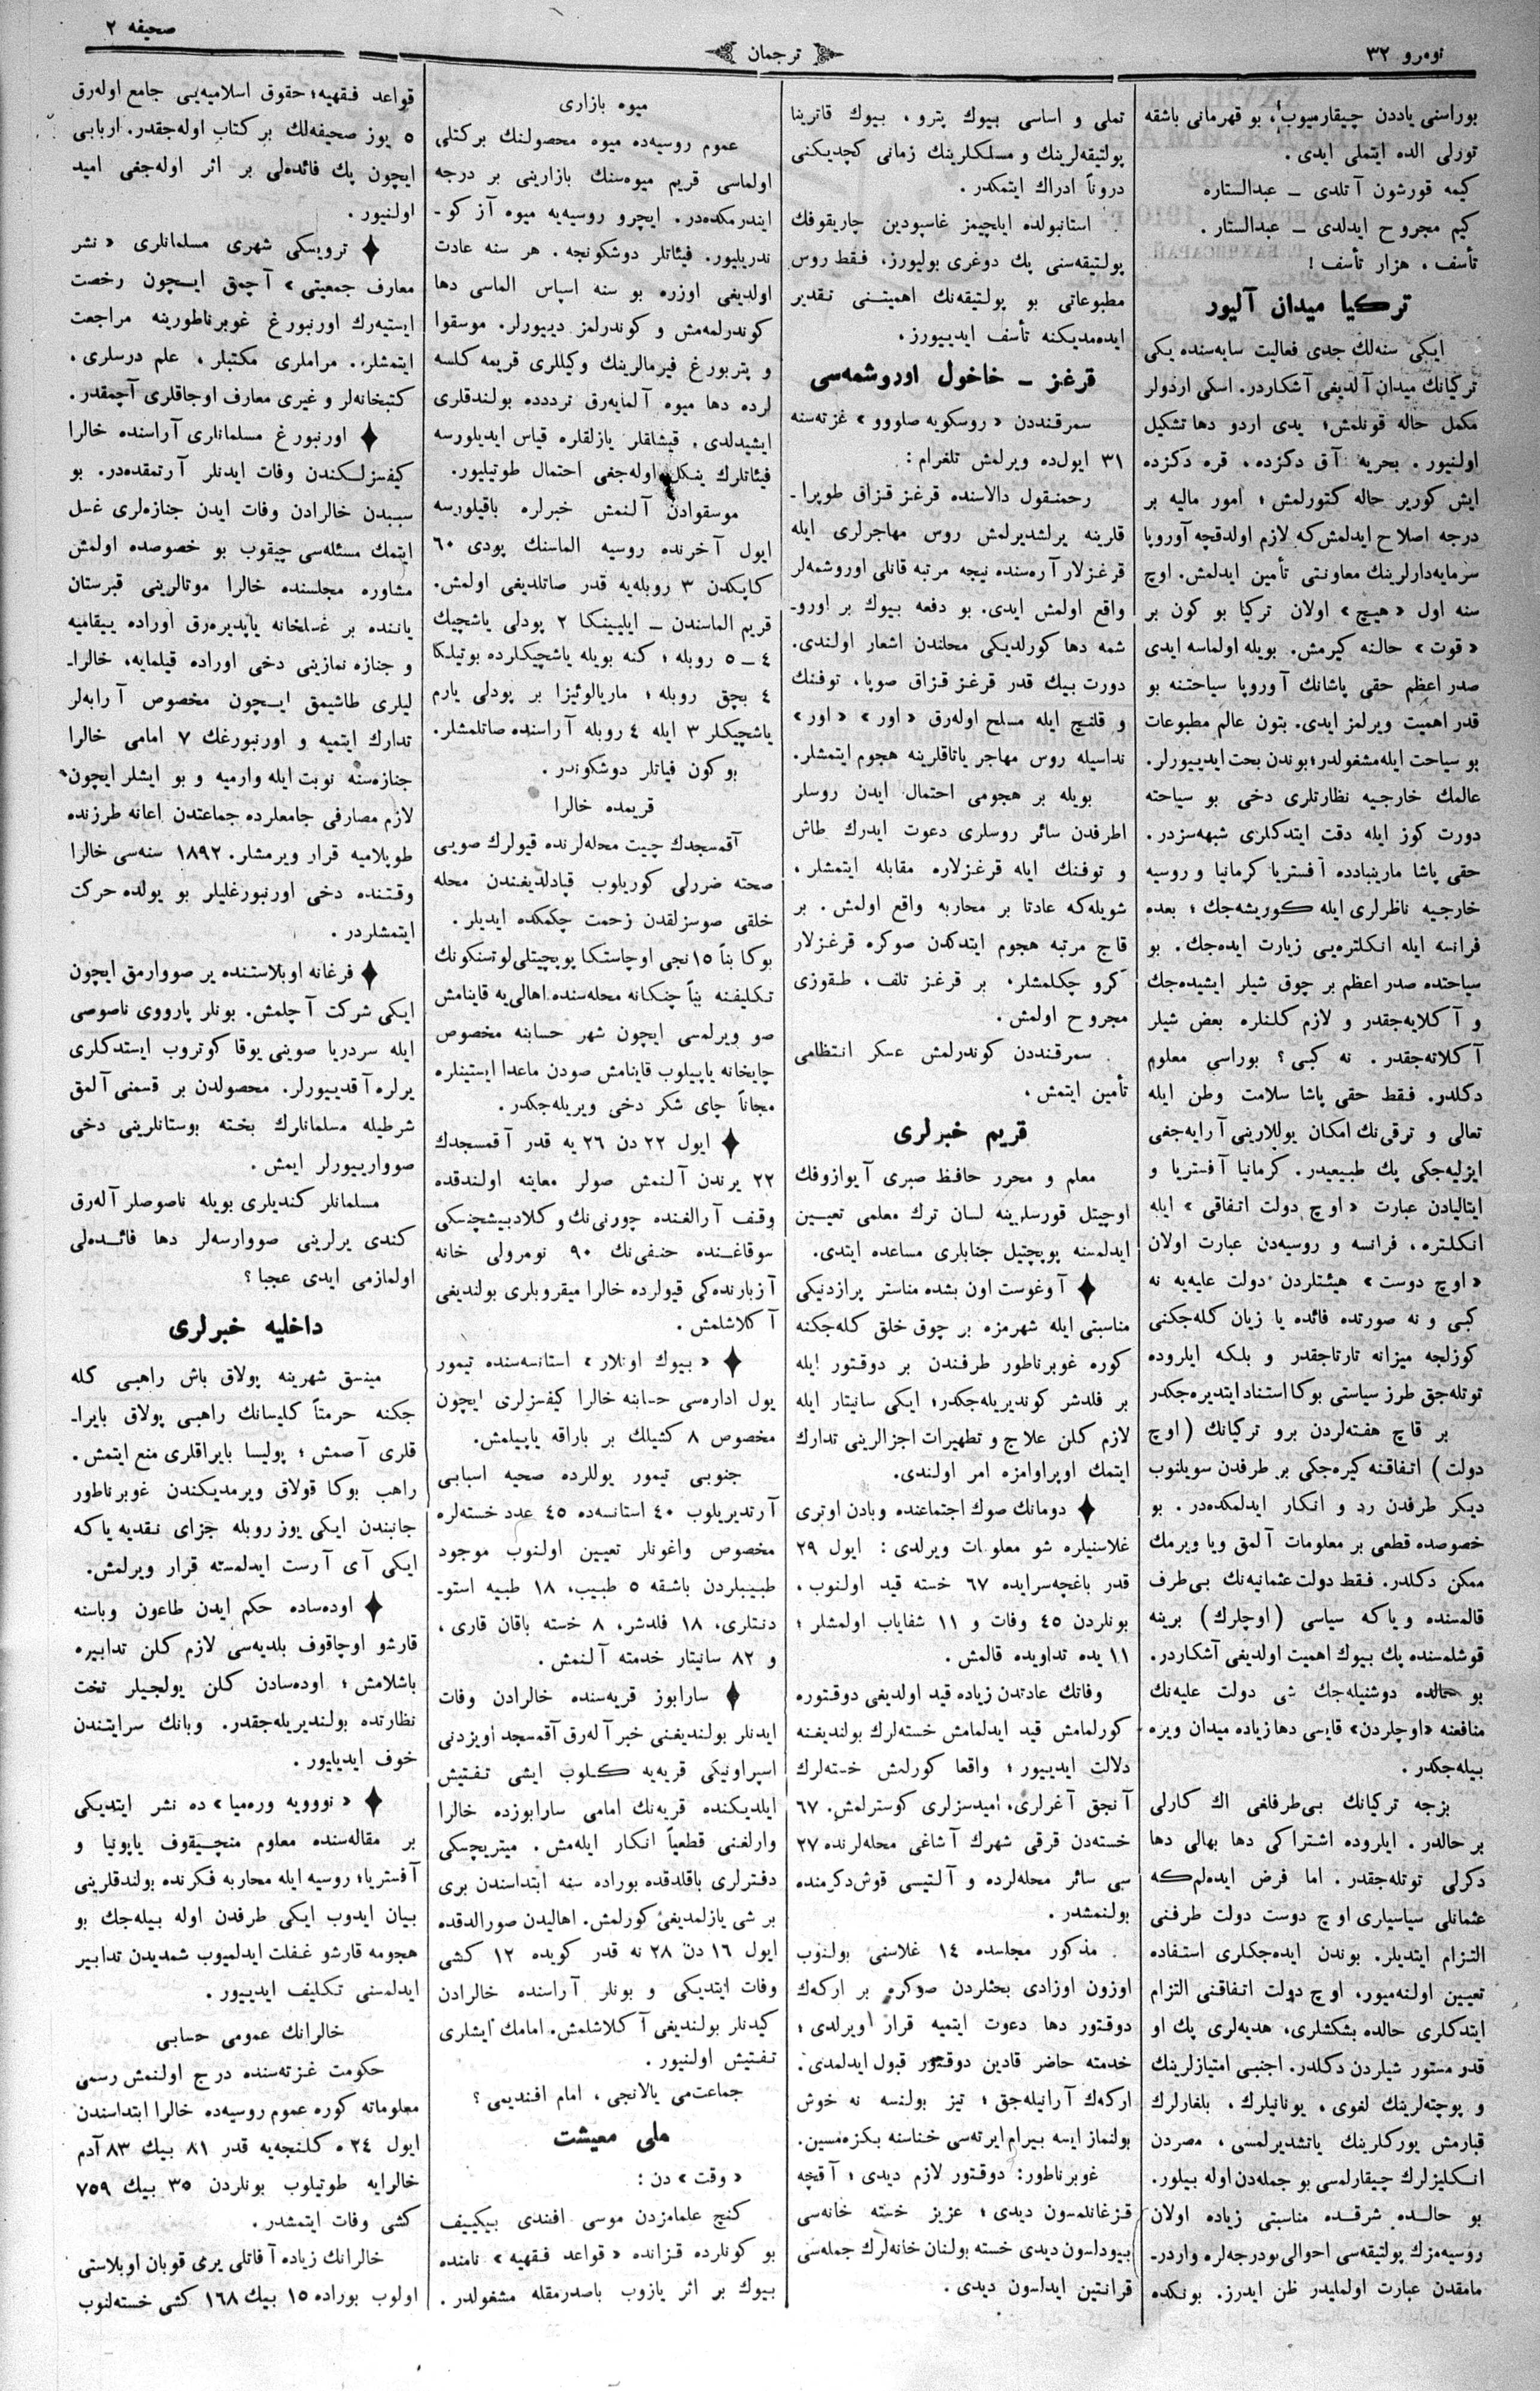 نومرو ٣٢
ترجمان
صحیفه ٢
بوراسنی یاددن چیقارمیوب، بو قهرمانی باشقه
تورلی الده ایتملی ایدی .
کیمه قورشون آتلدی ــ عبدالستاره
کیم مجروح ایدلدی ــ عبدالستار .
تأسف ، هزار تأسف !
ترکیا میدان آلیور
ایکی سنه‌لك جدی فعالیت سایه‌سنده یکی
ترکیانك میدان آلدیغی آشکاردر. اسکی اردولر
مکمل حاله قونلمش؛ یدی اردو دها تشکیل
اولنیور . بحریه آق دکزده ، قره دکزده
ایش کوریر حاله کتورلمش ؛ امور مالیه بر
درجه اصلاح ایدلمش‌که لازم اولدقچه آوروپا
سرمایه‌دارلرینك معاونتی تأمین ایدلمش. اوچ
سنه اول « هیچ » اولان ترکیا بو کون بر
« قوت » حالنه کیرمش. بویله اولماسه ایدی
صدر اعظم حقی پاشانك آوروپا سیاحتنه بو
قدر اهمیت ویرلمز ایدی. بتون عالم مطبوعات
بو سیاحت ایله مشغولدر؛ بوندن بحث ایدییورلر.
عالمك خارجیه نظارتلری دخی بو سیاحته
دورت کوز ایله دقت ایتدکلری شبهه‌سزدر.
حقی پاشا مارینبادده آفستریا کرمانیا و روسیه
خارجیه ناظرلری ایله کوریشه‌جك ؛ بعده
فرانسه ایله انکلتره‌یی زیارت ایده‌جك. بو
سیاحتده صدر اعظم بر چوق شیلر ایشیده‌جك
و آکلایه‌جقدر و لازم کلنلره بعض شیلر
آکلاته‌جقدر . نه کبی ؟ بوراسی معلوم
دکلدر. فقط حقی پاشا سلامت وطن ایله
تعالی و ترقی‌نك امکان یوللارینی آرایه‌جغی
ایزلیه‌جکی پك طبیعیدر. کرمانیا آفستریا و
ایتالیادن عبارت « اوچ دولت اتفاقی » ایله
انکلتره ، فرانسه و روسیه‌دن عبارت اولان
« اوچ دوست » هیئتلردن دولت علیه‌یه نه
کبی و نه صورتده فائده یا زیان کله‌جکنی
کوزلجه میزانه تارتاجقدر و بلکه ایلروده
توتله‌جق طرز سیاستی بوکا استناد ایتدیره‌جکدر
بر قاچ هفته‌لردن برو ترکیانك ( اوچ
دولت ) اتفاقنه کیره‌جکی بر طرفدن سویلنوب
دیکر طرفدن رد و انکار ایدلمکده‌در . بو
خصوصده قطعی بر معلومات آلمق ویا ویرمك
ممکن دکلدر. فقط دولت عثمانیه‌نك بی‌طرف
قالمسنده و یاکه سیاسی ( اوچلرك ) برینه
قوشلمسنده پك بیوك اهمیت اولدیغی آشکاردر.
بو حالده دوشنیله‌جك شی دولت علیه‌نك
منافعنه « اوچلردن» قایسی دها زیاده میدان ویره
بیله‌جکدر .
بزجه ترکیانك بی‌طرفلغی اك کارلی
بر حالدر . ایلروده اشتراکی دها بهالی دها
دکرلی توتله‌جقدر . اما فرض ایده‌لم‌که
عثمانلی سیاسیاری اوچ دوست دولت طرفنی
التزام ایتدیلر. بوندن ایده‌جکلری استفاده
تعیین اولنه‌میور، اوچ دولت اتفاقنی التزام
ایتدکلری حالده بشکشلری، هدیه‌لری پك او
قدر مستور شیلردن دکلدر. اجنبی امتیازلرینك
و پوچته‌لرینك لغوی ، یونانیلرك ، بلغارلرك
قبارمش یورکلرینك یاتشدیرلمسی ، مصردن
انکلیزلرك چیقارلمسی بو جمله‌دن اوله بیلور.
بو حالده شرقده مناسبتی زیاده اولان
روسیه‌مزك پولتیقه‌سی احوالی بودرجه‌لره واردر-
مامقدن عبارت اولملیدر ظن ایدرز. بونکده
تملی و اساسی بیوك پترو ، بیوك قاترینا
پولتیقه‌لرینك و مسلکلرینك زمانی کچدیکنی
دروناً ادراك ایتمکدر .
استانبولده ایلچیمز غاسپودین چاریقوفك
پولتیقه‌سنی پك دوغری بولیورز. فقط روس
مطبوعاتی بو پولتیقه‌نك اهمیتنی تقدیر
ایده‌مدیکنه تأسف ایدییورز .
قرغز ــ خاخول اوروشمه‌سی
سمرقنددن « روسکویه صلووو » غزته‌سنه
٣١ ایولده ویرلمش تلغرام :
رحمنقول دالاسنده قرغز قزاق طوپرا-
قلرینه یرلشدیرلمش روس مهاجرلری ایله
قرغزلار آره‌سنده نیچه مرتبه قانلی اوروشمه‌لر
واقع اولمش ایدی. بو دفعه بیوك بر اورو-
شمه دها کورلدیکی محلندن اشعار اولندی.
دورت بیك قدر قرغز قزاق صوپا، توفنك
و قلنچ ایله مسلح اوله‌رق « اور » « اور »
نداسیله روس مهاجر یاتاقلرینه هجوم ایتمشلر.
بویله بر هجومی احتمال ایدن روسلر
اطرفدن سائر روسلری دعوت ایدرك طاش
و توفنك ایله قرغزلاره مقابله ایتمشلر ،
شویله‌که عادتا بر محاربه واقع اولمش . بر
قاچ مرتبه هجوم ایتدکدن صوکره قرغزلار
کرو چکلمشلر، بر قرغز تلف ، طقوزی
مجروح اولمش .
سمرقنددن کوندرلمش عسکر انتظامی
تأمین ایتمش ،
قریم خبرلری
معلم و محرر حافظ صبری آیوازوفك
اوچیتل قورسلرینه لسان ترك معلمی تعیین
ایدلمسنه پوپچیتیل جنابلری مساعده ایتدی.
آوغوست اون بشده مناستر پرازدنیکی
مناسبتی ایله شهرمزه بر چوق خلق کله‌جکنه
کوره غوبرناطور طرفندن بر دوقتور ایله
بر فلدشر کوندیریله‌جکدر؛ ایکی سانیتار ایله
لازم کلن علاج و تطهیرات اجزالرینی تدارك
ایتمك اوپراوامزه امر اولندی.
دومانك صوك اجتماعنده وبادن اوتری
غلاسنیلره شو معلومات ویرلدی : ایول ٢٩
قدر باغچه‌سرایده ٦٧ خسته قید اولنوب ،
بونلردن ٤٥ وفات و ١١ شفایاب اولمشلر ؛
١١ یده تداویده قالمش .
وفاتك عادتدن زیاده قید اولدیغی دوقتوره
کورلمامش قید ایدلمامش خسته‌لرك بولندیغنه
دلالت ایدییور ؛ واقعا کورلمش خسته‌لرك
آنجق آغرلری، امیدسزلری کوسترلمش. ٦٧
خسته‌دن قرقی شهرك آشاغی محله‌لرنده ٢٧
سی سائر محله‌لرده و آلتیسی قوش‌دکرمنده
بولنمشدر .
مذکور مجلسده ١٤ غلاسنی بولنوب
اوزون اوزادی بحثلردن صوکره بر ارکك
دوقتور دها دعوت ایتمیه قرار ویرلدی ؛
خدمته حاضر قادین دوقتور قبول ایدلمدی.
ارکك آرانیله‌جق ؛ تیز بولنسه نه خوش
بولنماز ایسه بیرام ایرته‌سی خناسنه بکزه‌مسین.
غوبرناطور: دوقتور لازم دیدی ؛ آقچه
قزغانلمسون دیدی ؛ عزیز خسته خانه‌سی
بیودلسون دیدی خسته بولنان خانه‌لرك جمله‌سی
قرانتین ایدلسون دیدی .
میوه بازاری
عموم روسیه‌ده میوه محصولنك برکتلی
اولماسی قریم میوه‌سنك بازارینی بر درجه
ایندرمکده‌در. ایچرو روسیه‌یه میوه آز کو-
ندریلیور. فیئاتلر دوشکونجه . هر سنه عادت
اولدیغی اوزره بو سنه اسپاس الماسی دها
کوندرلمه‌مش و کوندرلمز دیییورلر. موسقوا
و پتربورغ فیرمالرینك وکیللری قریمه کلسه
لرده دها میوه آلمایه‌رق ترددده بولندقلری
ایشیدلدی . قیشلقلر یازلقلره قیاس ایدیلورسه
فیئاتلرك ینکل اوله‌جغی احتمال طوتیلیور.
موسقوادن آلنمش خبرلره باقیلورسه
ایول آخرنده روسیه الماسنك پودی ٦٠
کاپکدن ٣ روبله‌یه قدر صاتلدیغی اولمش.
قریم الماسندن ــ ایلیینکا ٢ پودلی یاشچیك
٤ــ٥ روبله ؛ کنه بویله یاشچیکلرده بوتیلکا
٤ بچق روبله ؛ ماریالوئیزا بر پودلی یارم
یاشچیکلر ٣ ایله ٤ روبله آراسنده صاتلمشلر.
بو کون فیاتلر دوشکوندر .
قریمده خالرا
آقمسجدك چیت محله‌لرنده قیولرك صویی
صحته ضررلی کوریلوب قپادلدیغندن محله
خلقی صوسزلقدن زحمت چکمکده ایدیلر.
بوکا بنأ ١٥ نجی اوچاستکا پوپچیتلی لوتسنکونك
تکلیفنه بنأ چنکانه محله‌سنده اهالی‌یه قاینامش
صو ویرلمسی ایچون شهر حسابنه مخصوص
چایخانه یاپیلوب قاینامش صودن ماعدا ایستینلره
مجاناً چای شکر دخی ویریله‌جکدر.
ایول ٢٢ دن ٢٦ یه قدر آقمسجدك
٢٢ یرندن آلنمش صولر معاینه اولندقده
وقف آرالغنده چورنی‌نك و کلادبیشچنسکی
سوقاغنده حنفی‌نك ٩٠ نومرولی خانه
آزبارنده‌کی قیولرده خالرا میقروبلری بولندیغی
آکلاشلمش .
« بیوك اونلار » استانسه‌سنده تیمور
یول اداره‌سی حسابنه خالرا کیفسزلری ایچون
مخصوص ٨ کشیلك بر باراقه یاپیلمش.
جنوبی تیمور یوللرده صحیه اسبابی
آرتدیریلوب ٤٠ استانسه‌ده ٤٥ عدد خسته‌لره
مخصوص واغونلر تعیین اولنوب موجود
طبیبلردن باشقه ٥ طبیب، ١٨ طبیه استو-
دنتلری، ١٨ فلدشر، ٨ خسته باقان قاری ،
و ٨٢ سانیتار خدمته آلنمش .
سارابوز قریه‌سنده خالرادن وفات
ایدنلر بولندیغنی خبر آله‌رق آقمسجد اویزدنی
اسپراونیکی قریه‌یه کلوب ایشی تفتیش
ایلدیکنده قریه‌نك امامی سارابوزده خالرا
وارلغنی قطعیاً انکار ایله‌مش . میتریچسکی
دفترلری باقلدقده بوراده سنه ابتداسندن بری
بر شی یازلمدیغی کورلمش. اهالیدن صورالدقده
ایول ١٦ دن ٢٨ نه قدر کویده ١٢ کشی
وفات ایتدیکی و بونلر آراسنده خالرادن
کیدنلر بولندیغی آکلاشلمش. امامك ایشلری
تفتیش اولنیور .
جماعت‌می یالانجی ، امام افندیمی ؟
ملی معیشت
« وقت » دن :
کنج علمامزدن موسی افندی بیکییف
بو کونلرده قزانده « قواعد فقهیه » نامنده
بیوك بر اثر یازوب باصدرمقله مشغولدر .
قواعد فقهیه؛ حقوق اسلامیه‌یی جامع اوله‌رق
٥ یوز صحیفه‌لك بر کتاب اوله‌جقدر. اربابی
ایچون پك فائده‌لی بر اثر اوله‌جغی امید
اولنیور .
ترویسکی شهری مسلمانلری « نشر
معارف جمعیتی » آچمق ایچون رخصت
ایستیه‌رك اورنبورغ غوبرناطورینه مراجعت
ایتمشلر. مراملری مکتبلر ، علم درسلری ،
کتبخانه‌لر و غیری معارف اوجاقلری آچمقدر.
اورنبورغ مسلمانلری آراسنده خالرا
کیفسزلکندن وفات ایدنلر آرتمقده‌در. بو
سببدن خالرادن وفات ایدن جنازه‌لری غسل
ایتمك مسئله‌سی چیقوب بو خصوصده اولمش
مشاوره مجلسنده خالرا موتالرینی قبرستان
یاننده بر غسلخانه یاپدیره‌رق اوراده ییقامیه
و جنازه نمازینی دخی اوراده قیلمایه، خالرا-
لیلری طاشیمق ایچون مخصوص آرابه‌لر
تدارك ایتمیه و اورنبورغك ٧ امامی خالرا
جنازه‌سنه نوبت ایله وارمیه و بو ایشلر ایچون
لازم مصارفی جامعلرده جماعتدن اعانه طرزنده
طوپلامیه قرار ویرمشلر. ١٨٩٢ سنه‌سی خالرا
وقتنده دخی اورنبورغلیلر بو یولده حرکت
ایتمشلردر .
فرغانه اوبلاستنده یر صووارمق ایچون
ایکی شرکت آچلمش. بونلر پارووی ناصوصی
ایله سردریا صوینی یوقا کوتروب ایستدکلری
یرلره آقدیییورلر. محصولدن بر قسمنی آلمق
شرطیله مسلمانلرك بخته بوستانلرینی دخی
صوواریيورلر ایمش .
مسلمانلر کندیلری بویله ناصوصلر آله‌رق
کندی یرلرینی صووارسه‌لر دها فائده‌لی
اولمازمی ایدی عجبا ؟
داخلیه خبرلری
مینسق شهرینه پولاق باش راهبی کله
جکنه حرمتاً کلیسانك راهبی پولاق بایرا-
قلری آصمش ؛ پولیسا بایراقلری منع ایتمش .
راهب بوکا قولاق ویرمدیکندن غوبرناطور
جانبندن ایکی یوز روبله جزای نقدیه یاکه
ایکی آی آرست ایدلمسنه قرار ویرلمش.
اوده‌ساده حکم ایدن طاعون وباسنه
قارشو اوچاقوف بلدیه‌سی لازم کلن تدابیره
باشلامش ؛ اوده‌سادن کلن یولجیلر تخت
نظارتده بولندیریله‌جقدر. وبانك سرایتندن
خوف ایدیلیور .
« نوویه وره‌میا » ده نشر ایتدیکی
بر مقاله‌سنده معلوم منچیقوف یاپونیا و
آفستریا؛ روسیه ایله محاربه فکرنده بولندقلرینی
بیان ایدوب ایکی طرفدن اوله بیله‌جك بو
هجومه قارشو غفلت ایدلمیوب شمدیدن تدابیر
ایدلمسنی تکلیف ایدییور .
خالرانك عمومی حسابی
حکومت غزته‌سنده درج اولنمش رسمی
معلوماته کوره عموم روسیه‌ده خالرا ابتداسندن
ایول ٢٤ ه کلنجه‌یه قدر ٨١ بیك ٨٣ آدم
خالرایه طوتیلوب بونلردن ٣٥ بیك ٧٥٩
کشی وفات ایتمشدر .
خالرانك زیاده آفاتلی یری قوبان اوبلاستی
اولوب بوراده ١٥ بیك ١٦٨ کشی خسته‌لنوب